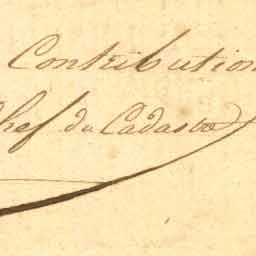 Contribution
Chef du Cadastre